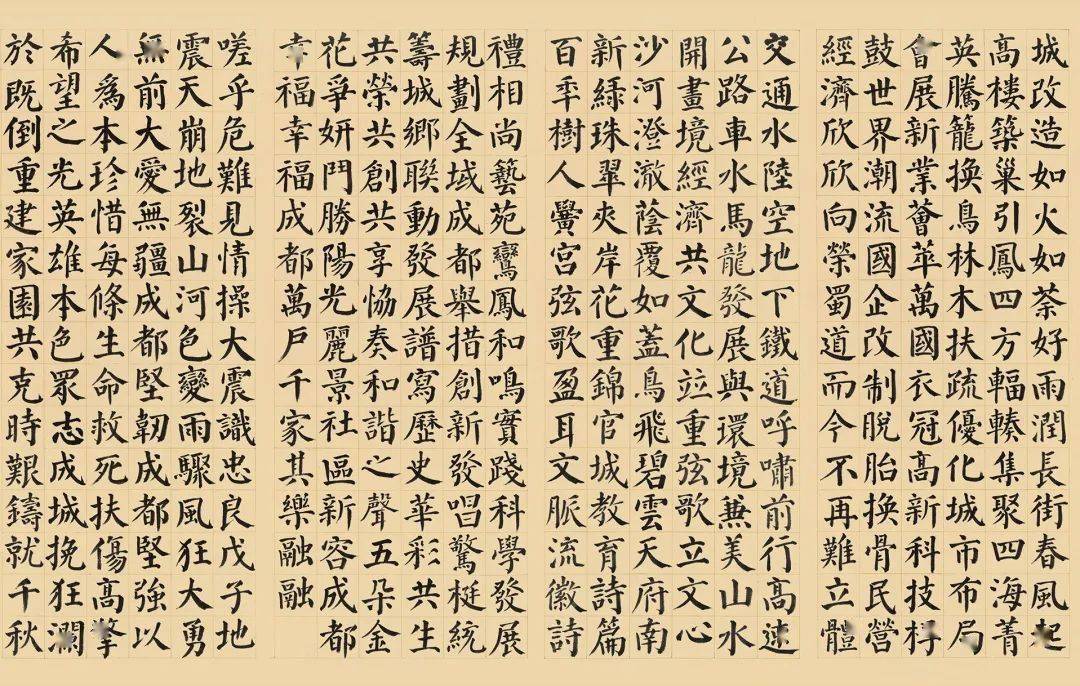 城改造如火如荼好雨潤長街春風起
高樓築巢引鳳四方輻輳集聚四海菁
英騰籠換鳥林木扶疏優化城市布局
會展新業薈萃萬國衣冠高新科技桴
鼓世界潮流國企改制脫胎換骨民營
經濟欣欣向榮蜀道而今不再難立體
交通水陸空地下鐵道呼嘯前行高速
公路車水馬龍發展與環境兼美山水
開畫境經濟共文化竝重弦歌立文心
沙河澄澈蔭覆如蓋鳥飛碧雲天府南
新綠珠翠夾岸花重錦官城教育詩篇
百秊樹人黌宮弦歌盈耳文脈流徽詩
禮相尚藝苑鸞鳳和鳴實踐科學發展
規劃全域成都舉措創新發唱驚梃統
籌城鄉聯動發展譜寫歷史華彩共生
共榮共創共享恊奏和諧之聲五朵金
花爭妍鬥勝陽光麗景社區新容成都
幸福幸福成都萬戶千家其樂融融
嗟乎危難見情操大震識忠良戊子地
震天崩地裂山河色變雨驟風狂大勇
無前大愛無疆成都堅韌成都堅強以
人爲本珍惜每條生命救死扶傷高擎
希望之光英雄本色眾志成城挽狂瀾
於既倒重建家園共克時艱鑄就千秋